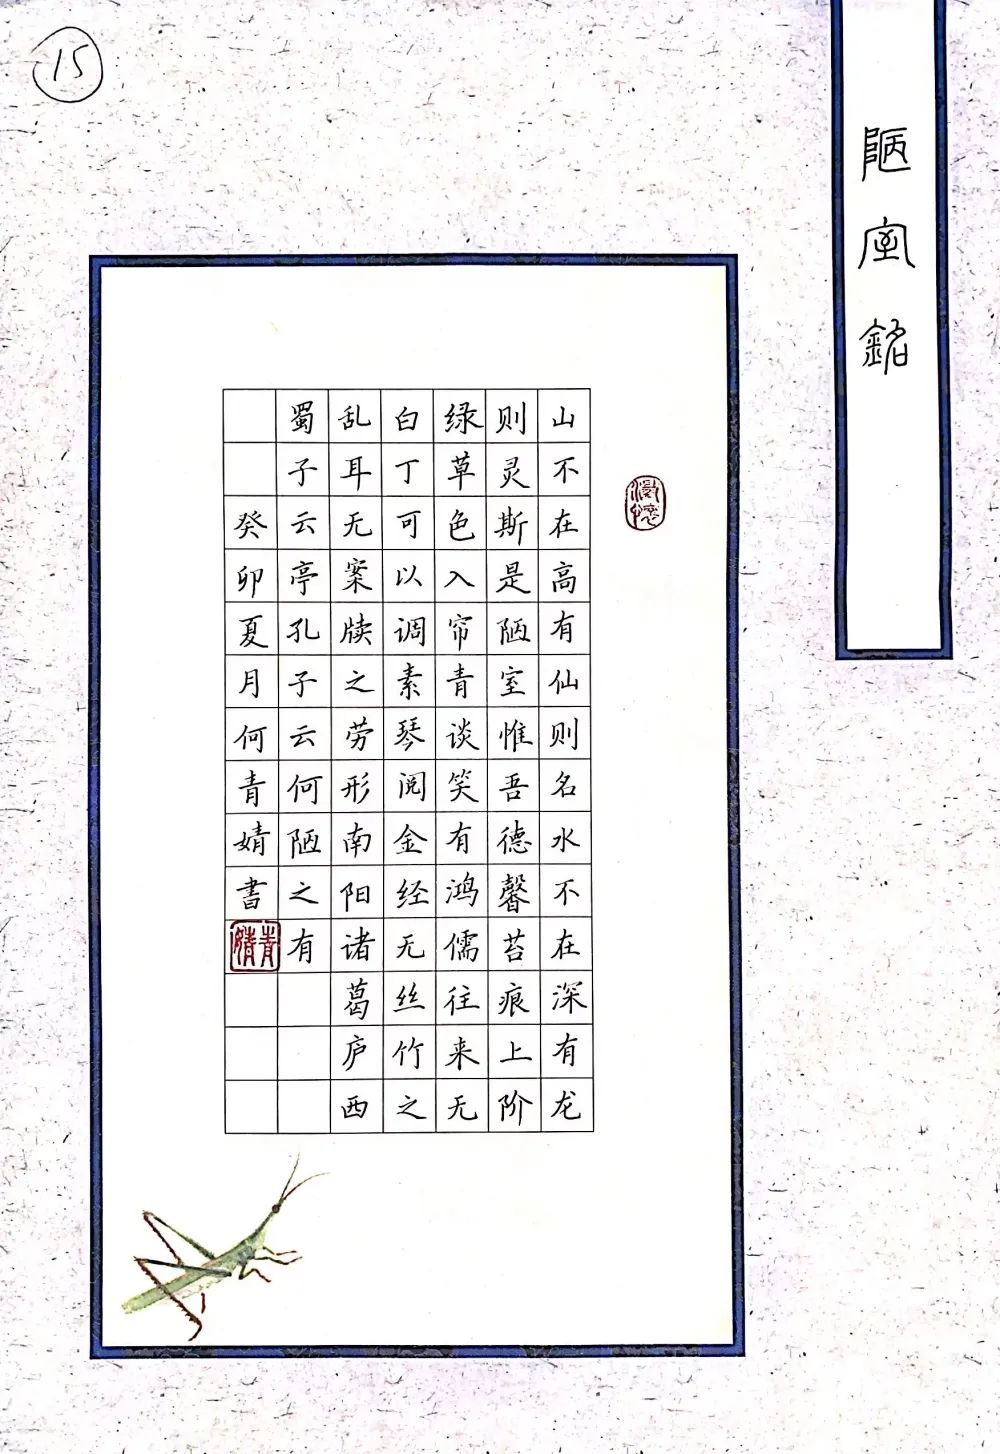 15
陋室銘
澄懷
山不在高有仙则名水不在深有龙
则灵斯是陋室惟吾德馨苔痕上阶
绿草色入帘青谈笑有鸿儒往来无
白丁可以调素琴阅金经无丝竹之
乱耳无案牍之劳形南阳诸葛庐西
蜀子云亭孔子云何陋之有
癸卯夏月何青婧書
青婧